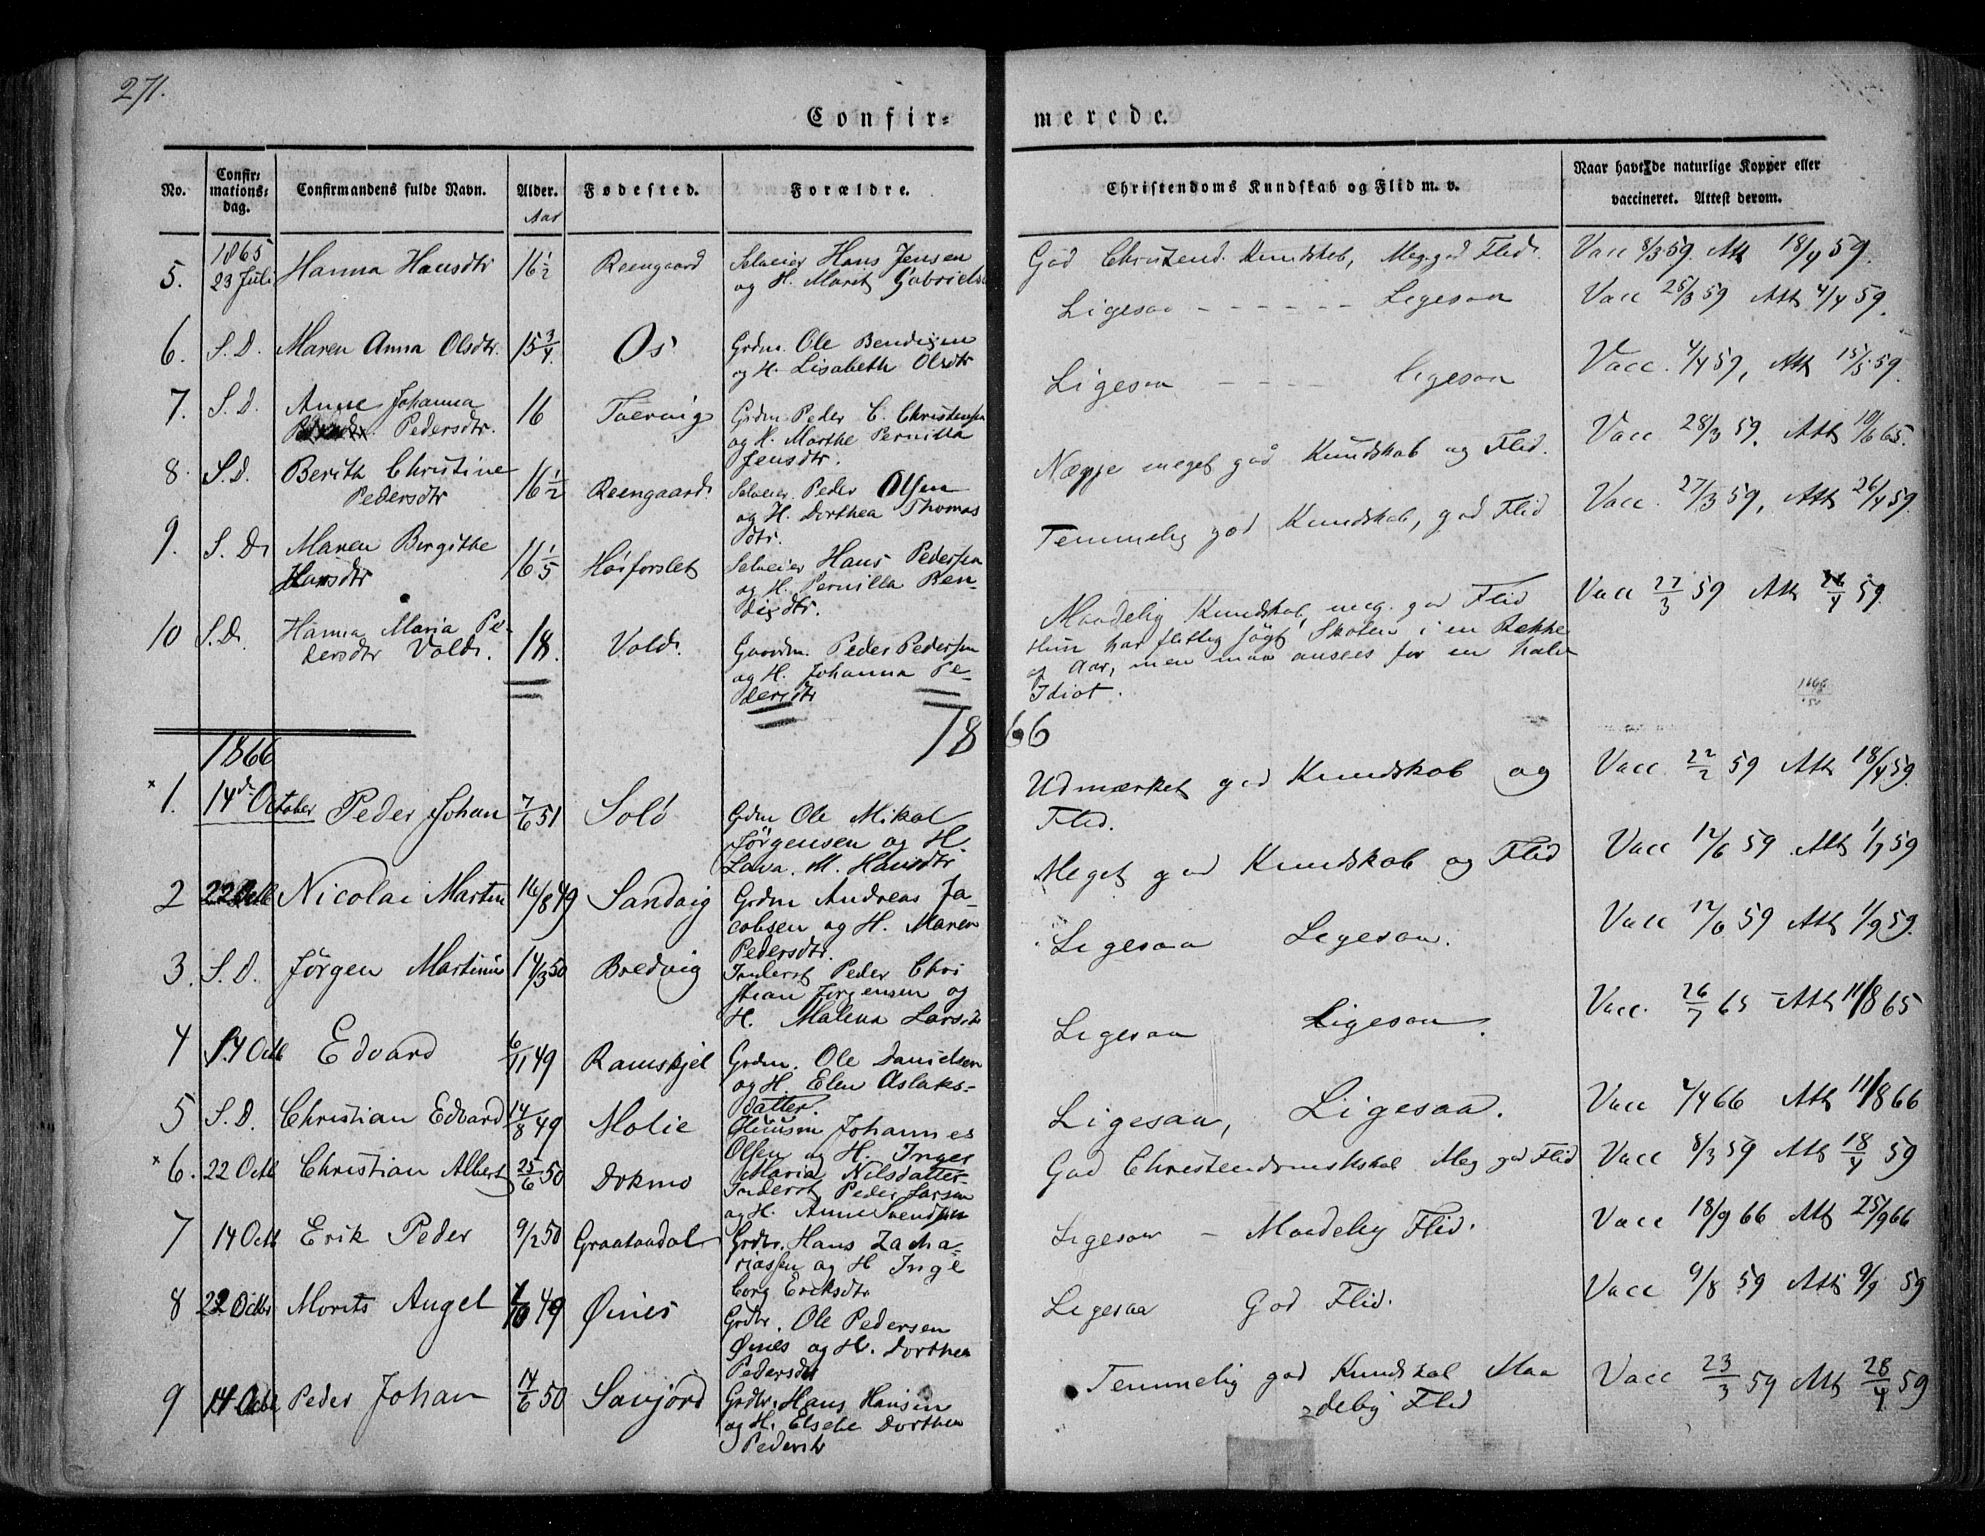 271.
Confir-
merede.
No.
Confir-
mations-
dag.
Confirmandens fulde Navn.
Alder.
Aar
Fødested.
Forældre.
Christendoms Kundskab og Flid m. v.
Naar havt de naturlige Kopper eller
vaccineret. Attest derom.
1865
5. 23 Juli Hanna Hansdtr 16 1/2 Reengaard Selveier Hans Jensen
og H. Marit Gabriels
God Christend. Kundskab, Meg. god Flid. Vacc 8/3 59. Att 18/4 59.
6. S. D. Maren Anna Olsdtr. 15 3/4 Os Grdm. Ole Bendigsen
og H. Lisabeth Olsdtr
Ligesaa - - - - - Ligesaa Vacc 25/3 59 Att 4/4 59.
7. S. D. Anne Johanna
Pedersdtr. 16 Tvervig Grdm Peder C. Christensen
og H. Marthe Pernilla
Jensdtr.
Ligesaa - - - - ligesaa Vacc. 4/4 59, Att 15/5 59.
8. S. D. Berith Christine
Pedersdtr 16 1/2 Reengaard Selveier Peder Olsen
og H. Dorthea Thomas
dtr.
Næppe meget god Kundskab og Flid. Vacc 28/3 59. Att 10/6 65.
9. S. D. Maren Birgithe
Hansdtr 16 1/5 Høiforslet Selveier Hans Pedersen
og H. Pernilla Ben-
digdtr.
Temmelig god Kundskab, god Flid Vacc. 27/3 59, Att 26/4 59.
10 S. D. Hanna Maria Pe-
dersdtr Vold. 18. Vold. Gaardm. Peder Pedersen
og H. Johanna Pe-
dersdtr
Maadelig Kundskab, meg. god Flid Vacc 27/3 59 Att 4 59.
Hun har flittig søgt Skolen i en Række
af Aar, men maa ansees for en halv
Idiot.
1866
1866
1. 14de October Peder Johan 7/6 51 Solø Grdm Ole Mikal
Jørgensen og H.
Lava. M. Hansdtr
Udmærket god Kundskab og
Flid.
Vacc 22/2 59 Att 18/4 59.
2 22 Octb Nicolai Martin 16/8 49 Sandvig Grdm Andreas Ja-
cobsen og H. Maren
Pedersdtr.
Meget god Kundskab og Flid Vacc 12/6 59 Att 1/7 59
3. S. D. Jørgen Martinus 14/3 50 Bredvig Inderst Peder Chri
stian Jørgensen og
H. Malena Larsdtr
Ligesaa Ligesaa. Vacc 12/6 59 Att 1/9 59.
4 14 Octb Edvard 6/11 49 Ramskjel Grdm. Ole Danielsen
og H. Elen Aslaks-
datter.
Ligesaa Ligesaa. Vacc. 26/7 65 Att 11/8 65
5 S. D. Christian Edvard 14/8 49 Molie Huusm Johannes
Olsen og H. Inger
Maria Nilsdatter
Ligesaa, Ligesaa. Vacc 4/4 66 Att 11/8 66
6. 22 Octb Christian Albert 25/6 50 Dokmo Inderst Peder Larsen
og H. Anne Svendsen
God Christendomskskab Meg god Flid Vacc 8/3 59 Att 18/4 59
7 14 Octb Erik Peder 9/2 50 Graataadal Grdbr. Hans Zacha-
riassen og H Inge
borg Eriksdtr
Ligesaa - Maadelig Flid. Vacc 18/9 66 Att 25/9 66
8 22 Octbr Morits Angel 49 Øines Grdbr. Ole Pedersen
Øines og H. Dorthea
Pedersdtr
Ligesaa God Flid. Vacc 9/8 59 Att 9/9 59
9 14 Octb Peder Johan 14/6 50 Savjord Grdbr. Hans Hansen
og H. Elsebe Dorthea
Pedersdtr
Temmelig god Kundskab Maa
delig Flid
Vacc 23/3 59 Att 28/4 59